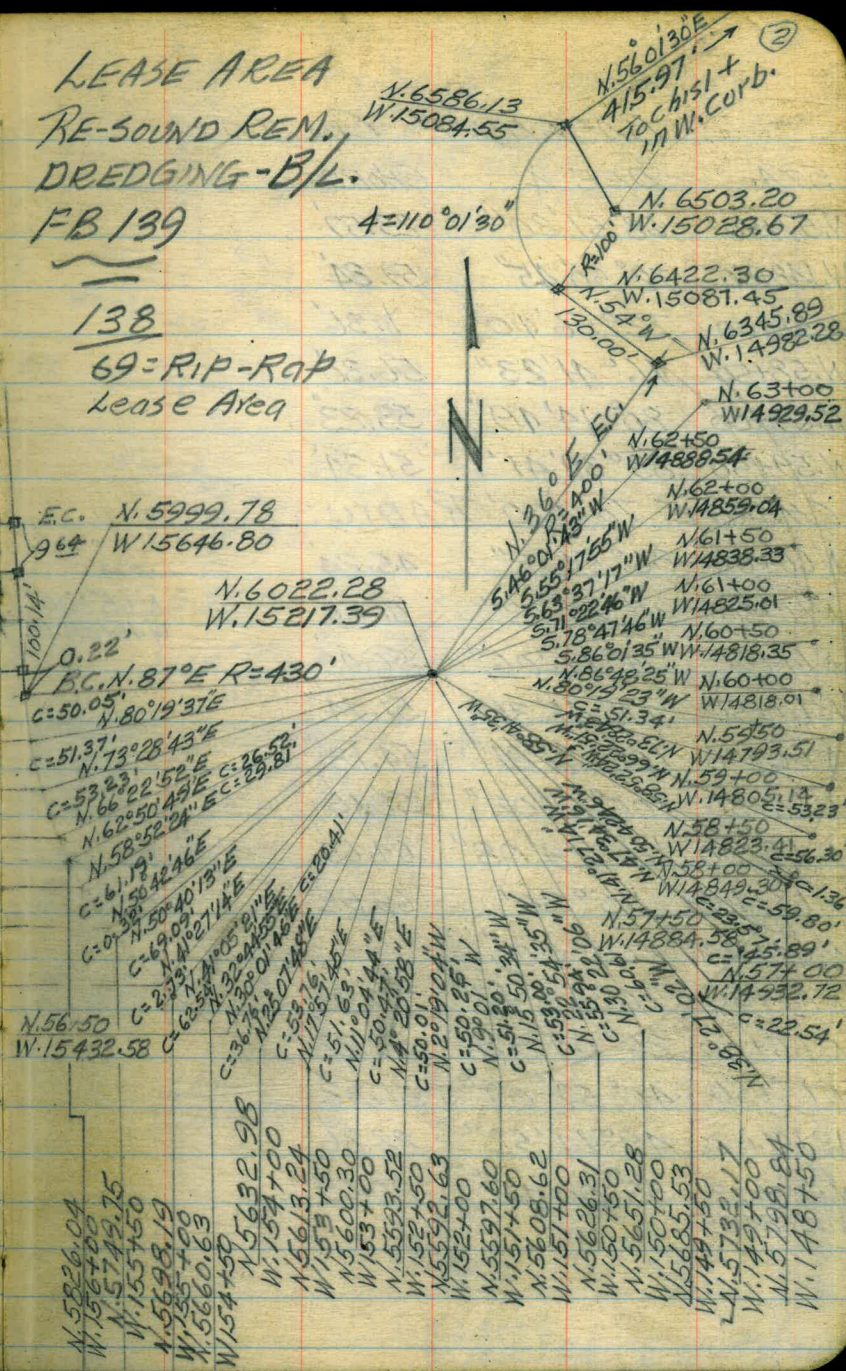 LEASE AREA
RE-SOUND REM.
DREDGING-B/L.
FB 139
138
69=RIP-RAP
Lease Area
②
N.56°01'30"E
415.97'
To chisl +
in W. Curb.
N.6586.13
W.15084.55
N. 6503.20
W.15028.67
Δ=110°01'30"
R=100'
N. 6422.30
W.15087.45
N.54°W
130.00'
N. 6345.89
W.14982.28
N
N. 63+00
W14929.52
N.62+50
W14888.54
N.62+00
W14859.04
N.61+50
W14838.33
N.61+00
W14825.01
N.60+50
W.14818.35
N.60+00
W14818.01
N.59+50
W.14793.51
N.59+00
W.14805.14
N.58+50
W14823.41
N.58+00
W14849.30
N.57+50
W.14884.58
N.57+00
W.14932.72
N.36°E E.C.
R=400'
S.46°01'43"W
S.55°17'55"W
S.63°37'17"W
S.71°22'46"W
S.78°47'46"W
S.86°01'35"W
N.86°48'25"W
N.80°19'23"W
C=51.34'
C=53.23'
C=56.30'
C=1.36
C=59.80'
C=45.89'
C=22.54'
E.C.
9.64
100.14'
N. 5999.78
W15646.80
N.6022.28
W.15217.39
0.22'
B.C. N.87°E R=430'
C=50.05'
N.80°19'37"E
C=51.37'
N.73°28'43"E
C=53.23'
N.66°22'52"E
C=26.52'
N.62°50'49"E
C=29.81'
N.58°52'24"E
C=61.19'
N.50°42'46"E
N.50°40'13"E
C=69.09'
N.41°27'14"E
C=2.73'
N.41°05'21"E
C=62.54'
N.30°01'46"E
C=20.41'
C=36.76'
C=53.76'
N.17°57'45"E
C=51.63'
N.11°04'44"E
C=50.47'
N.4°20'58"E
C=50.01'
N.2°19'04"W
C=50.25'
N.15°50'34"W
N.41°27'14"W
N.56+50
W.15432.58
N.5826.04
W.156+00
N.5749.75
W.155+50
N.5698.19
W.155+00
N.5660.63
W154+50
N5632.98
W.154+00
N.5613.24
W153+50
N.5600.30
W153+00
N.5593.52
W.152+50
N5592.63
W.152+00
N.5597.60
W.151+50
N.5608.62
W.151+00
N.5626.31
W.150+50
N.5651.28
W.150+00
N.5685.53
W.149+50
N.5732.17
W.149+00
N.5798.84
W.148+50